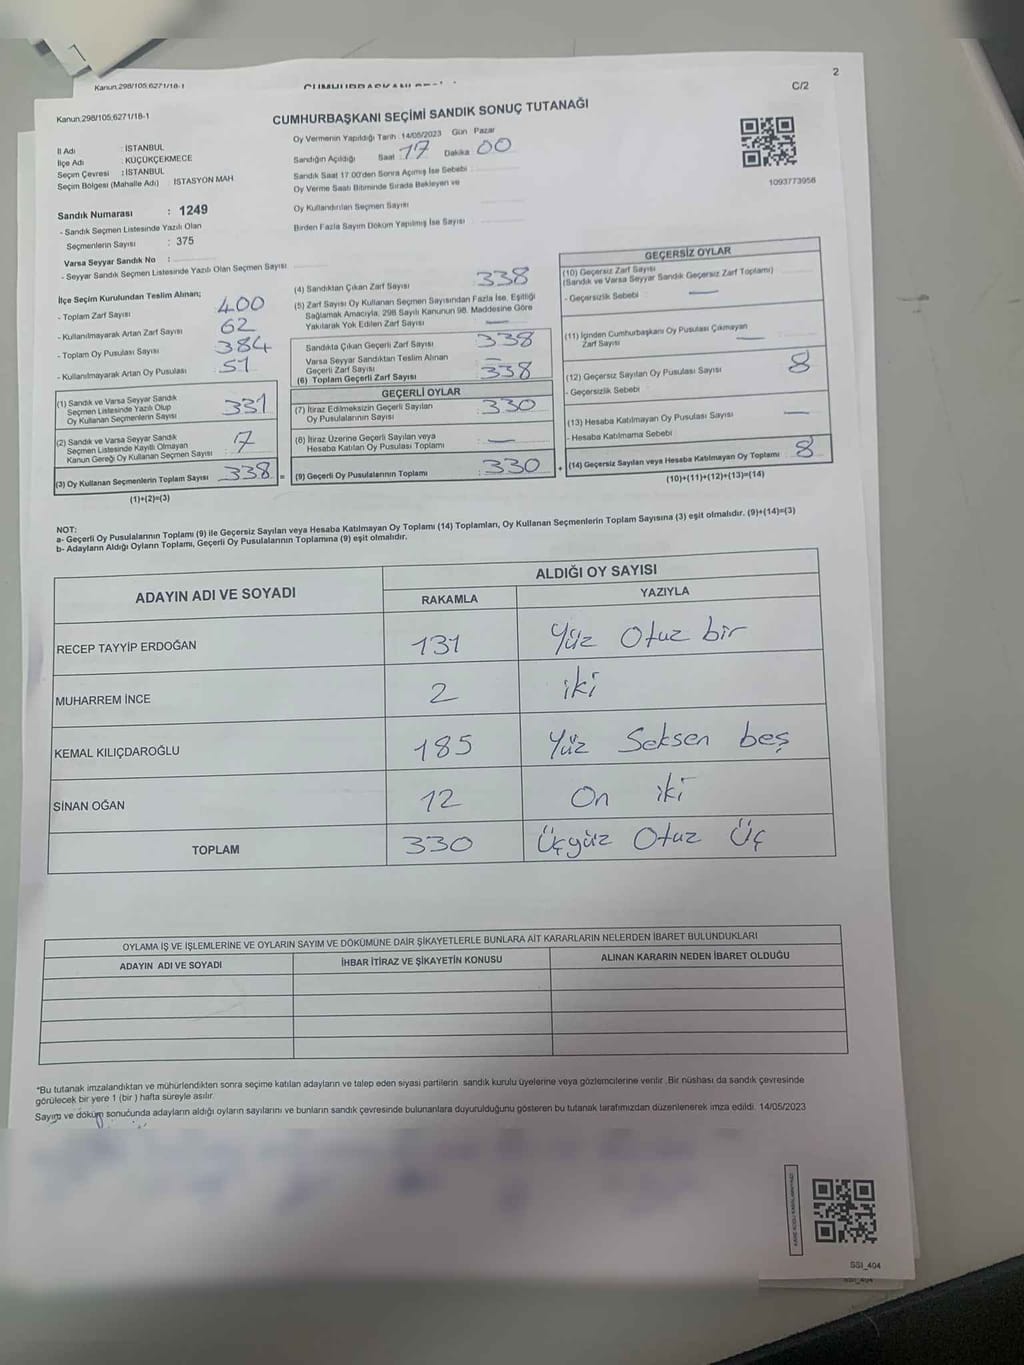 2
Kanun.298/105;6271/18-1
C/2
Kanun.298/105;6271/18-1
CUMHURBAŞKANI SEÇİMİ SANDIK SONUÇ TUTANAĞI
Oy Vermenin Yapıldığı Tarih : 14/05/2023 Gün Pazar
İl Adı : İSTANBUL
İlçe Adı : KÜÇÜKÇEKMECE
Seçim Çevresi : İSTANBUL
Seçim Bölgesi (Mahalle Adı) : İSTASYON MAH
Sandığın Açıldığı Saat : 17 Dakika : 00
Sandık Saat 17:00'den Sonra Açımış İse Sebebi
Oy Verme Saati Bitiminde Sırada Bekleyen ve
Oy Kullandırılan Seçmen Sayısı
Birden Fazla Sayım Döküm Yapılmış İse Sayısı
1093773958
Sandık Numarası : 1249
- Sandık Seçmen Listesinde Yazılı Olan
Seçmenlerin Sayısı : 375
Varsa Seyyar Sandık No :
- Seyyar Sandık Seçmen Listesinde Yazılı Olan Seçmen Sayısı
İlçe Seçim Kurulundan Teslim Alınan;
- Toplam Zarf Sayısı : 400
- Kullanılmayarak Artan Zarf Sayısı : 62
- Toplam Oy Pusulası Sayısı : 384
- Kullanılmayarak Artan Oy Pusulası : 51
(1) Sandık ve Varsa Seyyar Sandık
Seçmen Listesinde Yazılı Olup
Oy Kullanan Seçmenlerin Sayısı : 331
(2) Sandık ve Varsa Seyyar Sandık
Seçmen Listesinde Kayıtlı Olmayan
Kanun Gereği Oy Kullanan Seçmen Sayısı : 7
(3) Oy Kullanan Seçmenlerin Toplam Sayısı : 338 =
(1)+(2)=(3)
(4) Sandıktan Çıkan Zarf Sayısı 338
(5) Zarf Sayısı Oy Kullanan Seçmen Sayısından Fazla İse, Eşitliği
Sağlamak Amacıyla, 298 Sayılı Kanunun 98. Maddesine Göre
Yakılarak Yok Edilen Zarf Sayısı —
Sandıkta Çıkan Geçerli Zarf Sayısı : 338
Varsa Seyyar Sandıktan Teslim Alınan
Geçerli Zarf Sayısı —
(6) Toplam Geçerli Zarf Sayısı : 338
GEÇERLİ OYLAR
(7) İtiraz Edilmeksizin Geçerli Sayılan
Oy Pusulalarının Sayısı : 330
(8) İtiraz Üzerine Geçerli Sayılan veya
Hesaba Katılan Oy Pusulası Toplamı : —
(9) Geçerli Oy Pusulalarının Toplamı : 330 +
GEÇERSİZ OYLAR
(10) Geçersiz Zarf Sayısı
(Sandık ve Varsa Seyyar Sandık Geçersiz Zarf Toplamı)
- Geçersizlik Sebebi : —
(11) İçinden Cumhurbaşkanı Oy Pusulası Çıkmayan
Zarf Sayısı —
(12) Geçersiz Sayılan Oy Pusulası Sayısı : 8
- Geçersizlik Sebebi :
(13) Hesaba Katılmayan Oy Pusulası Sayısı : —
- Hesaba Katılmama Sebebi :
(14) Geçersiz Sayılan veya Hesaba Katılmayan Oy Toplamı : 8
(10)+(11)+(12)+(13)=(14)
NOT:
a- Geçerli Oy Pusulalarının Toplamı (9) ile Geçersiz Sayılan veya Hesaba Katılmayan Oy Toplamı (14) Toplamları, Oy Kullanan Seçmenlerin Toplam Sayısına (3) eşit olmalıdır. (9)+(14)=(3)
b- Adayların Aldığı Oyların Toplamı, Geçerli Oy Pusulalarının Toplamına (9) eşit olmalıdır.
ADAYIN ADI VE SOYADI
ALDIĞI OY SAYISI
RAKAMLA YAZIYLA
RECEP TAYYİP ERDOĞAN 131 Yüz Otuz bir
MUHARREM İNCE 2 iki
KEMAL KILIÇDAROĞLU 185 Yüz Seksen beş
SİNAN OĞAN 12 On iki
TOPLAM 330 Üçyüz Otuz Üç
OYLAMA İŞ VE İŞLEMLERİNE VE OYLARIN SAYIM VE DÖKÜMÜNE DAİR ŞİKAYETLERLE BUNLARA AİT KARARLARIN NELERDEN İBARET BULUNDUKLARI
ADAYIN ADI VE SOYADI İHBAR İTİRAZ VE ŞİKAYETİN KONUSU ALINAN KARARIN NEDEN İBARET OLDUĞU
*Bu tutanak imzalandıktan ve mühürlendikten sonra seçime katılan adayların ve talep eden siyasi partilerin sandık kurulu üyelerine veya gözlemcilerine verilir .Bir nüshası da sandık çevresinde
görülecek bir yere 1 (bir ) hafta süreyle asılır.
Sayım ve döküm sonucunda adayların aldığı oyların sayılarını ve bunların sandık çevresinde bulunanlara duyurulduğunu gösteren bu tutanak tarafımızdan düzenlenerek imza edildi. 14/05/2023
SSI_404
SSI_404